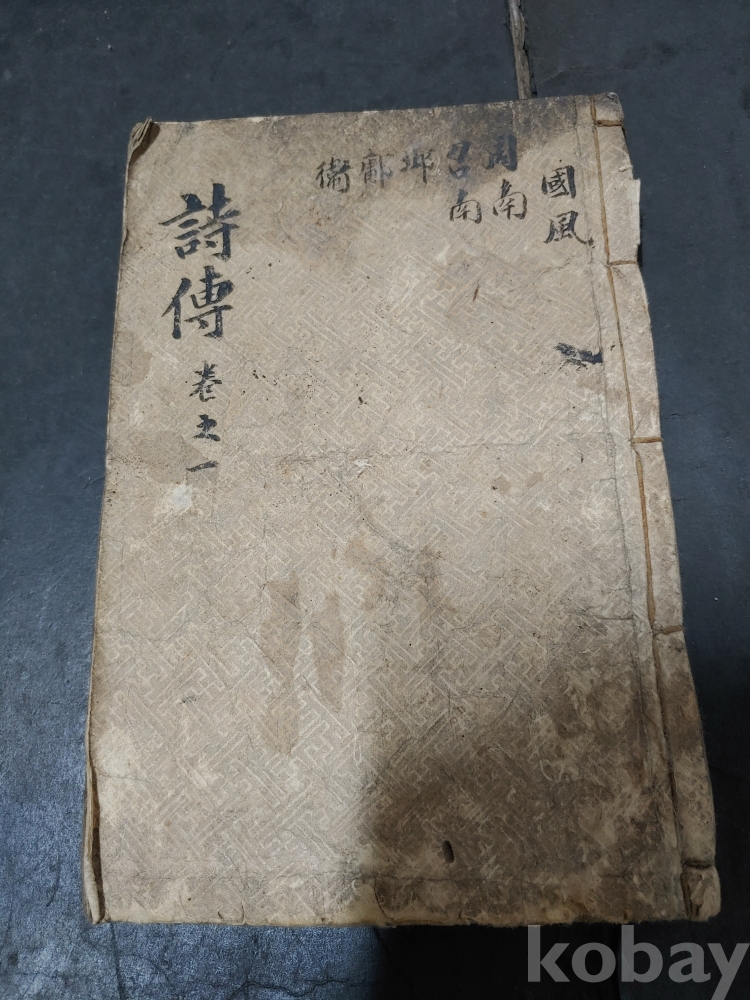 國風
周南
召南
邶
鄘
衛
詩傳
卷之一
kobay